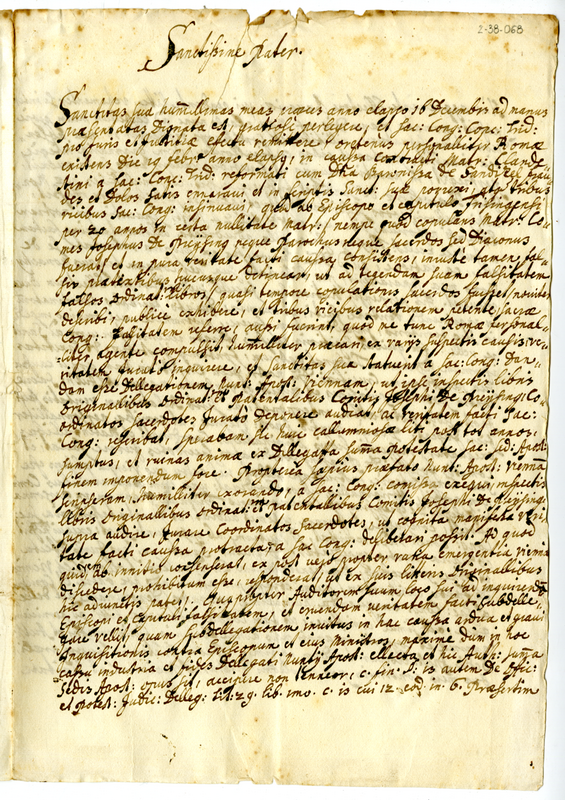 2-38-068
Sanctissime Pater.
Sanctitas sua humillimas meas preces anno elapso 16 Decembris ad manus
praesentatas dignata est, gratiose perlegere, et Sac: Cong: Conc: Trid:
pro juris et justitiae effectu remittere, prout Romae
existens die 19 febr: anno elapso, in caussa Contracti Matr: Clande-
stini a Sac: Conc: Trid: reformati cum Dna Baronissa de Sandizel frau-
des et dolos satis enarravi et in scriptis Sanct: suae porrexi, atque tribus
vicibus Sac: Cong: insinuavi, quod ab Episcopo et Capitulo frisingensi
per 20 annos in certa nullitate Matr: / nempe quod copulans Matr: Co-
mes Josephus de Preising neque Parochus neque Sacerdos sed Diaconus
fuerat, et in pura veritate facti caussa consistens, injuste tamen fal-
sis praetextibus hucusque detinear, ut ad tegendam suam falsitatem
falsos ordinat: libros, quasi tempore copulationis sacerdos fuisset / noviter
describi, publice exhibere, et tribus vicibus relationem petente Sacra
Cong: falsitatem referre, ausi fuerint, quod me tunc Romae personal-
liter agente compulsit, humiliter precari ex varijs suspectis caussis, ve-
ritatem jurato inquirere, et Sanctitas sua statuerit a Sac: Cong: dan-
dam esse Delegationem nunt: Apost: Viennam, ut ipse inspectis libris
originallibus ordinat: et patentalibus Comitis Josephi de Preising, Co-
ordinatos Sacerdotes jurato deponere audiat, ac veritatem facti Sac:
Cong: rescribat, sperabam sic huic callumniosae liti post tot annos,
sumptus, et ruinas animae ex Dellegata summa potestate Sac: Sed: Apost:
finem imponendum fore. Propterea saepius praefato Nunt: Apost: Vienna
scripseram, humiliter exorando, a Sac: Cong: comissa exequi, inspectis
libris originallibus ordinat: et patentalibus Comitis Josephi de Preising,
supra audire, jurare Coordinatos Sacerdotes, ut cognita manifesta veri-
tate facti caussa protracta, a Sac Cong: deliberari possit. Ad quod
quidem ab innitio consenserat, ex post vero propter varia emergentia Vienna
discedere, prohibitum esse, responderat, ut ex suis literis Originallibus
hic adjunctis patet, Quapropter Auditorem suum loco sui ad inquirendam
Episcopi et Capituli falsitatem, et eruendam veritatem facti subdele-
gare velit, quam subdellegationem invitus in hac caussa ardua et gravi
Inquisitionis contra Episcopum et ejus Ministros, maxime dum in hoc
cassu industria et fides Delegati Nuntij Apost: ellecta et hic Auth: summa
Sedis Apost: opus sit, accipere non teneor, c. fin. §: is autem de Offic:
et potest: Judic: Deleg: tit: 29. lib. imo. c. is cui 12. eod. in 6. Praesertim